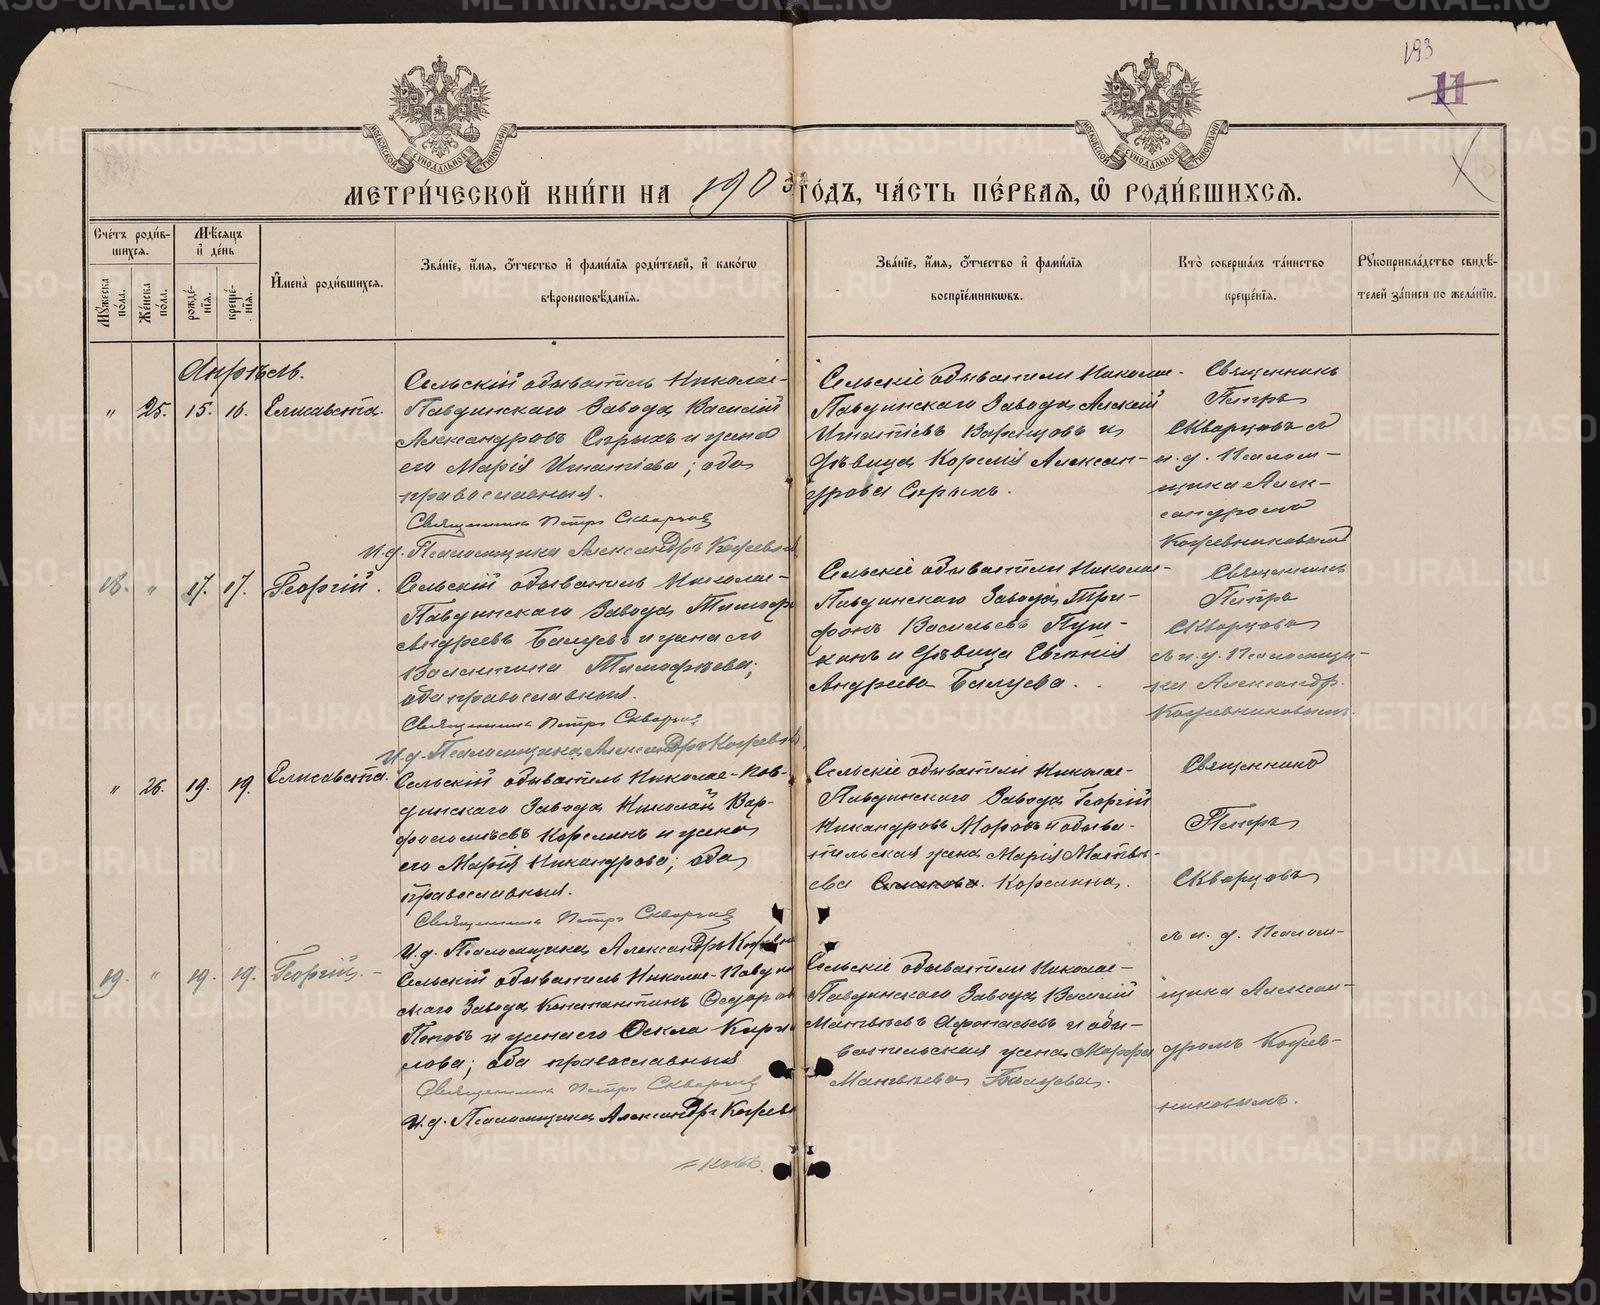 193
11
МОСКОВСКОЙ СѴНОДАЛЬНОЙ ТИПОГРАФІИ
МОСКОВСКОЙ СѴНОДАЛЬНОЙ ТИПОГРАФІИ
МЕТРИ́ЧЕСКОЙ КНИ́ГИ НА 1903 ГО́ДЪ, ЧА́СТЬ ПЕ́РВАЯ, Ѡ РОДИ́ВШИХСЯ.
Счетъ роди́в-
шихся.
Мѣсяцъ
и де́нь
Мꙋжеска по́ла.
Же́нска по́ла.
рожде́-
нїя.
креще́-
нїя.
И҆мена̀ роди́вшихся.
Зва́нїе, и҆́мя, ѻ҆́тчество и҆ фами́лїя роди́телей, и҆ како́гѡ
вѣроисповѣ́данїя.
Зва́нїе, и҆́мя, ѻ҆́тчество и҆ фами́лїя
воспрїе́мникѡвъ.
Кто̀ соверша́лъ та́инство
креще́нїя.
Рꙋкоприкла́дство свидѣ́-
телей за́писи по жела́нїю.
Апрѣль.
" 25. 15. 16. Елисавета.
Сельскій обыватель Николае-
Павдинскаго Завода Василій
Александровъ Сѣрыхъ и жена
его Марія Игнатіева; оба
православные.
Священникъ Петръ Скварцовъ
И.д. Псаломщика Александръ Кожевн
Сельскіе обыватели Николае-
Павдинскаго Завода Алексій
Игнатіевъ и
дѣвица Александрова Сѣрыхъ.
Священникъ
Петръ
Скварцовъ съ
и. д. Псалом-
щика Алек-
сандромъ
Кожевниковымъ
18. " 17. 17. Георгій.
Сельскій обыватель Николае-
Павдинскаго Завода Тимофе
Андреевъ Балуевъ и жена его
Валентина Тимофѣева;
оба православные.
Священникъ Петръ Скварцовъ
И.д. Псаломщика Александръ Кожевн
Сельскіе обыватели Николае-
Павдинскаго Завода Три-
фонъ Васильевъ Пуш-
кинъ и дѣвица Евгенія
Андреева Балуева.
Священникъ
Петръ
Скварцовъ
съ и. д. Псаломщи-
ка Александр.
Кожевниковымъ.
" 26. 19. 19. Елисавета.
Сельскій обыватель Николае-Пав-
динскаго Завода Николай Вар-
фоломѣевъ Корелинъ и жена
его Марія Никандрова; оба
православные.
Священникъ Петръ Скварцовъ
И.д. Псаломщика Александръ Кожевн
Сельскіе обыватели Николае-
Павдинскаго Завода Георгій
Никандровъ Моровъ и обыва-
тельская жена Марія Матвѣ-
ева Корелина.
Священникъ
Петръ
Скварцовъ
съ и. д. Псалом-
19. " 19. 19. Георгій. -
Сельскій обыватель Николае-Павдин
скаго Завода Константинъ Ѳедоров
Поповъ и жена его Ѳекла Кирил
лова; оба православные
Священникъ Петръ Скварцовъ
И.д. Псаломщика Александръ Кожевн
=ковъ.
Сельскіе обыватели Николае-
Павдинскаго Завода Василій
Матвѣевъ Афонасьевъ и обы-
вательская жена Марфа
Матвѣева Балуева.
щика Алексан-
дромъ Кожев-
никовымъ.
METRIKI.GASO-URAL.RU